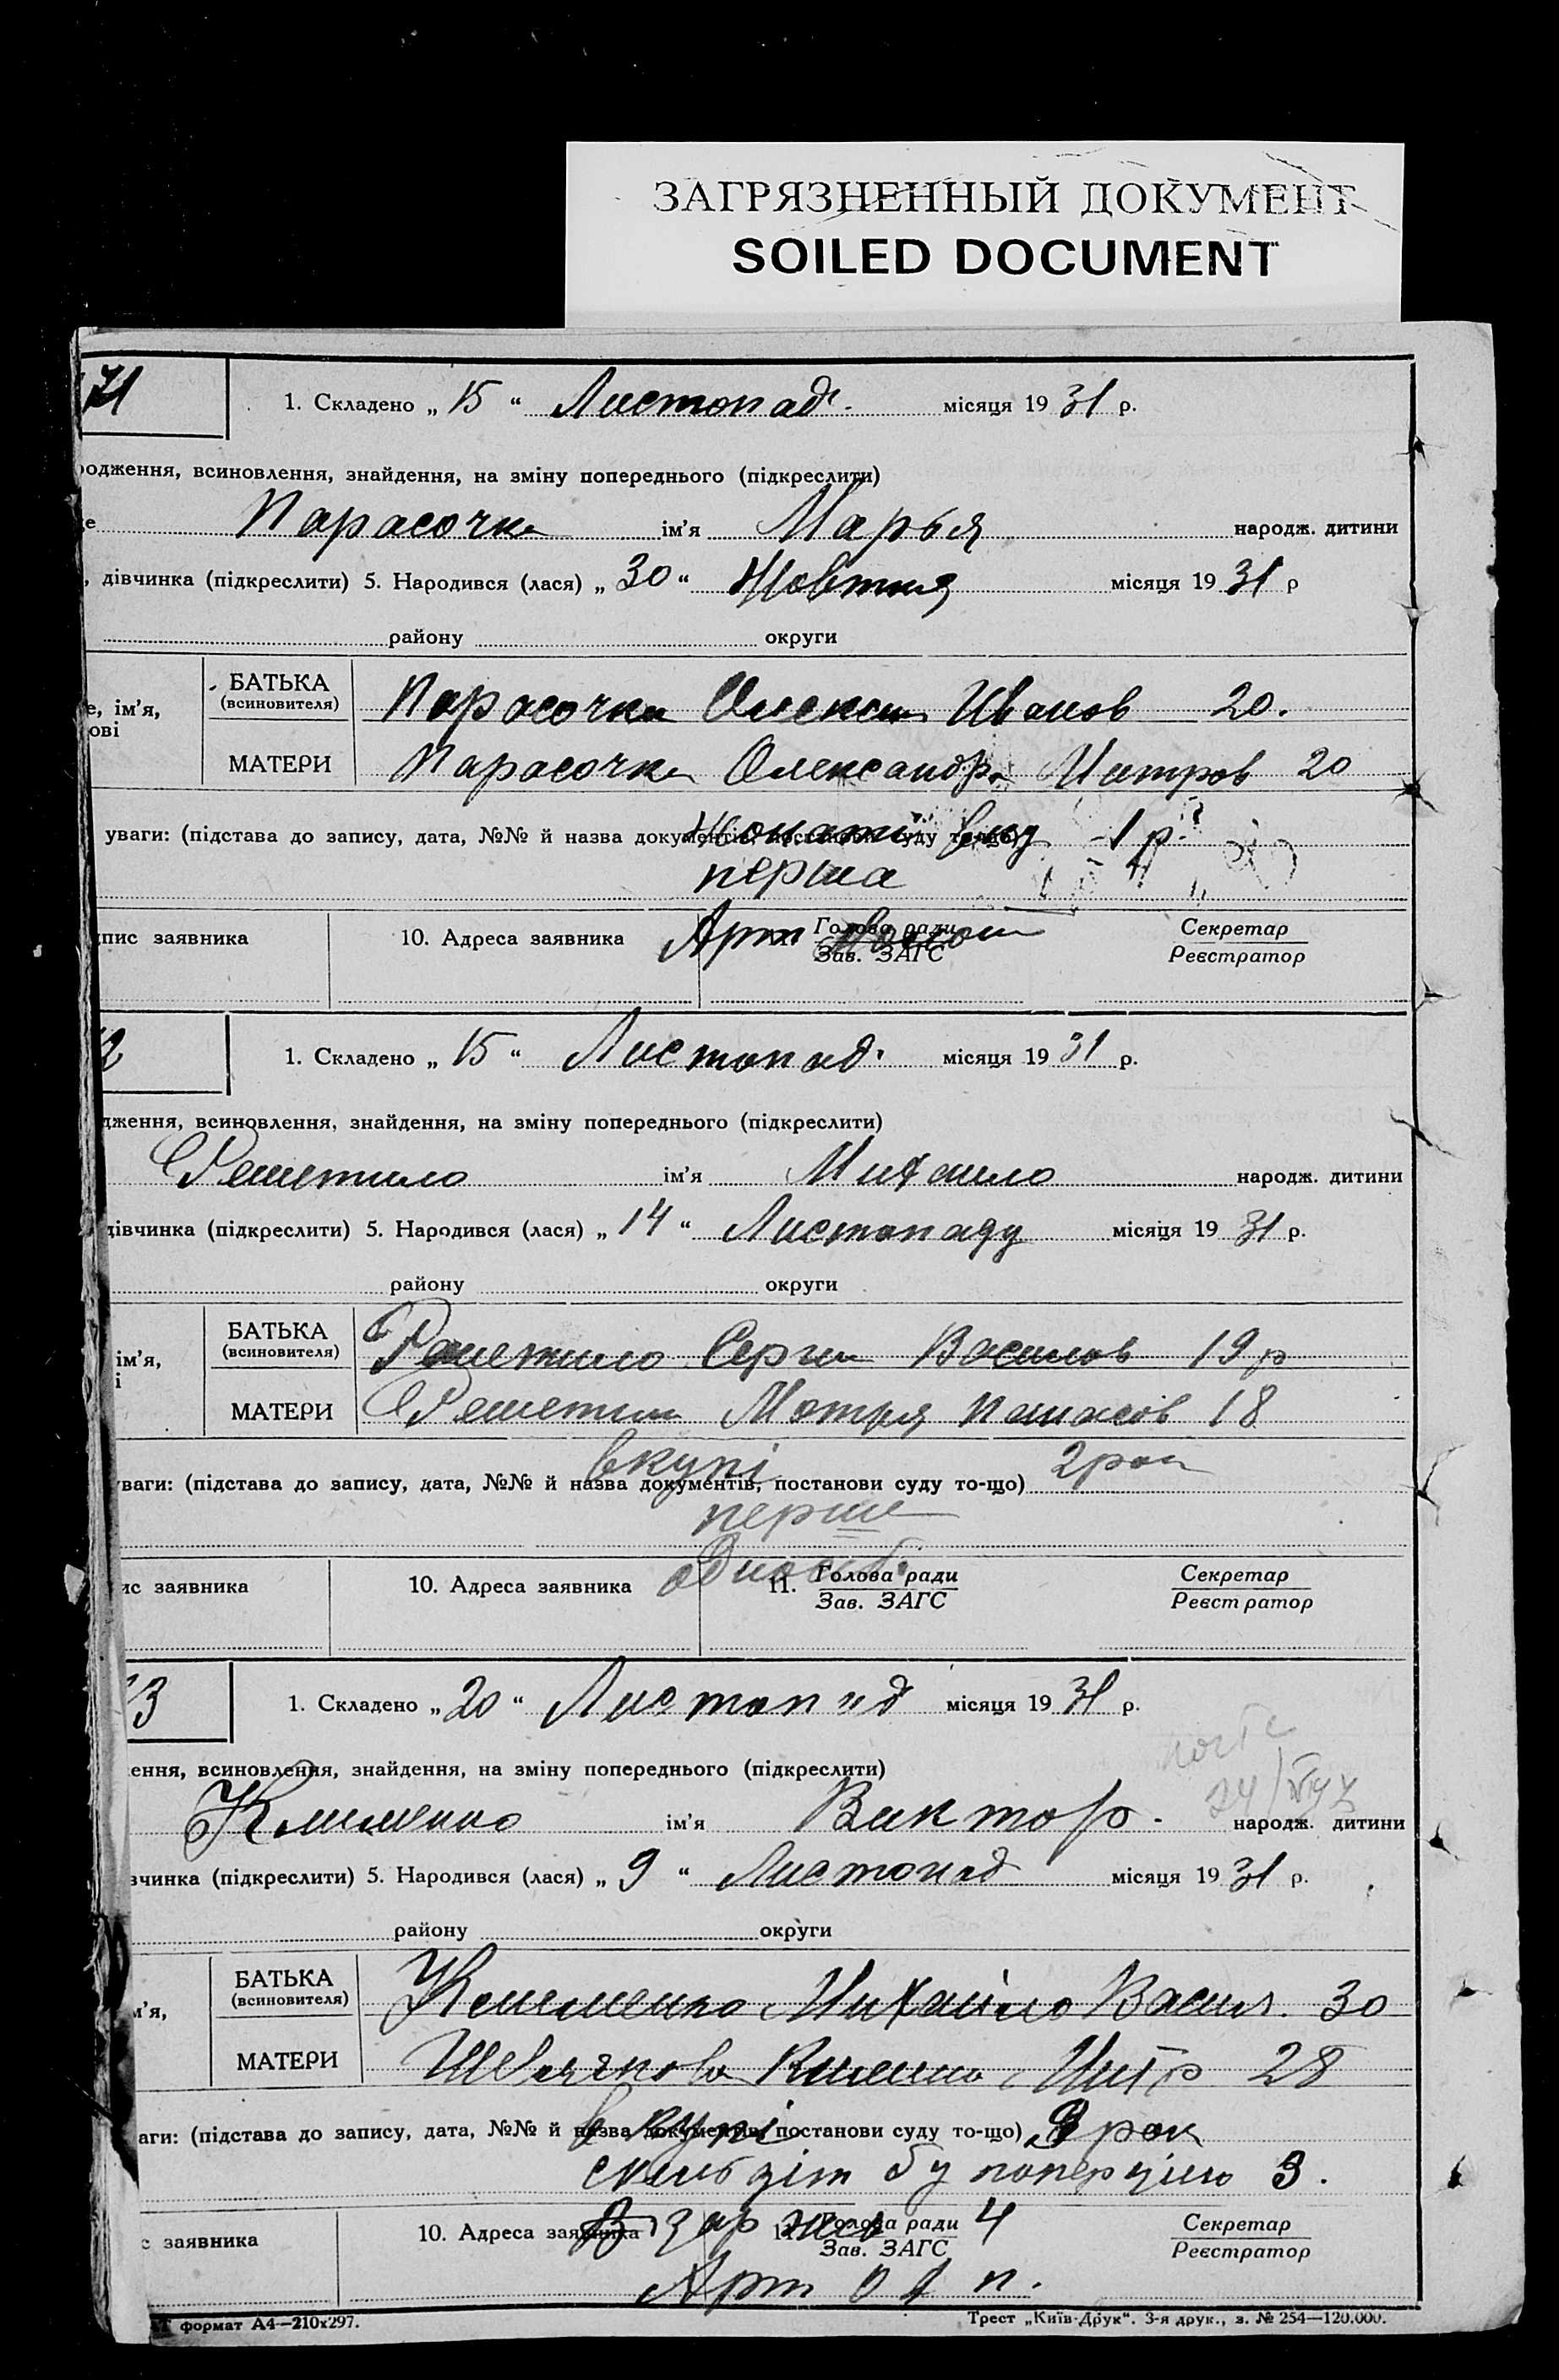 ЗАГРЯЗНЕННЫЙ ДОКУМЕНТ
SOILED DOCUMENT
71
1. Складено „ 15 “ Листопад. місяця 19 31 р.
одження, всиновлення, знайдення, на зміну попереднього (підкреслити)
е Парасочка ім’я Марья народж. дитини
, дівчинка (підкреслити) 5. Народився (лася) „ 30 “ Жовтня місяця 19 31 р
району округи
БАТЬКА
(всиновителя)
е, ім’я,
ові
Парасочка Олексій Иванов 20.
МАТЕРИ Парасочка Олександра 20
уваги: (підстава до запису, дата, №№ й назва документів, постанови суду то-що) 1 р.
перша
пис заявника 10. Адреса заявника Арт Голова ради Секретар
Зав. ЗАГС Реєстратор
2
1. Складено „ 15 “ Листопад. місяця 19 31 р.
дження, всиновлення, знайдення, на зміну попереднього (підкреслити)
Решетило ім’я Михаило народж. дитини
дівчинка (підкреслити) 5. Народився (лася) „ 14 “ Листопаду місяця 19 31 р.
району округи
БАТЬКА
(всиновителя)
ім’я,
і
Решетило Сергии Василов 19 р
МАТЕРИ Решетило Мотря 18
вкупі 2 рок
уваги: (підстава до запису, дата, №№ й назва документів, постанови суду то-що)
перше
ис заявника 10. Адреса заявника 11. Голова ради Секретар
Зав. ЗАГС Реєстратор
3
1. Складено „ 20 “ Листопад місяця 19 31 р.
ення, всиновлення, знайдення, на зміну попереднього (підкреслити)
Клименко ім’я Виктор. народж. дитини
вчинка (підкреслити) 5. Народився (лася) „ 9 “ Листопад місяця 19 31 р.
району округи
БАТЬКА
(всиновителя)
м’я,
Клеменко Михайло Васил. 30
МАТЕРИ 28
вкупі 9 рок
аги: (підстава до запису, дата, №№ й назва документів, постанови суду то-що)
скільки діт бу попередньо 3.
4
с заявника 10. Адреса заявника 11. Голова ради Секретар
Зав. ЗАГС Реєстратор
Арт
формат А4—210х297. Трест „Київ-Друк“. 3-я друк., з. № 254—120.000.